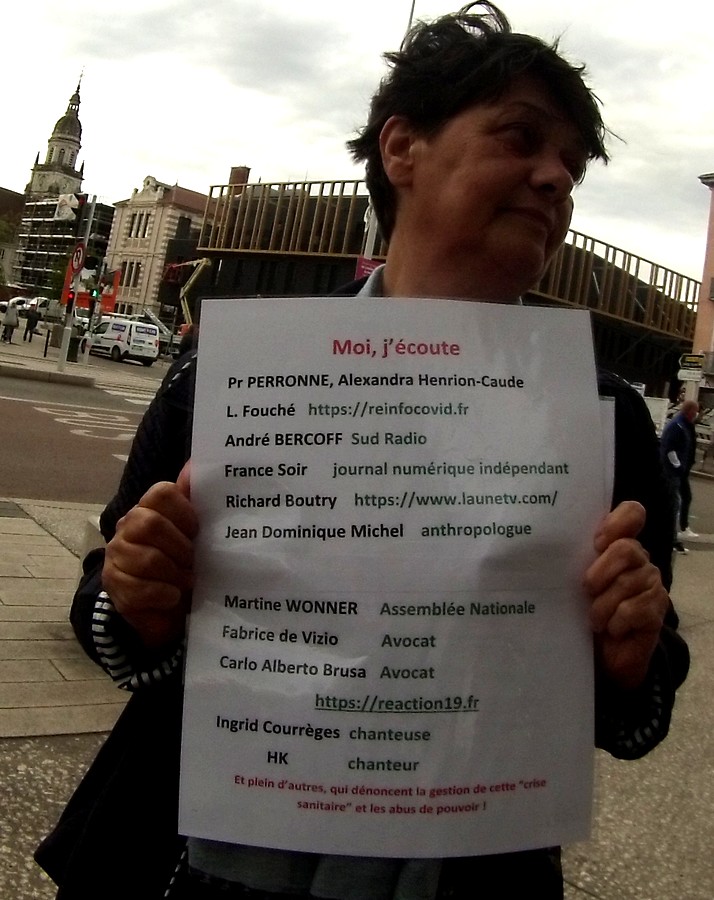 Moi, j'écoute
Pr PERRONNE, Alexandra Henrion-Caude
L. Fouché https://reinfocovid.fr
André BERCOFF Sud Radio
France Soir journal numérique indépendant
Richard Boutry https://www.launetv.com/
Jean Dominique Michel anthropologue
Martine WONNER Assemblée Nationale
Fabrice de Vizio Avocat
Carlo Alberto Brusa Avocat
https://reaction19.fr
Ingrid Courrèges chanteuse
HK chanteur
Et plein d'autres, qui dénoncent la gestion de cette "crise
sanitaire" et les abus de pouvoir !